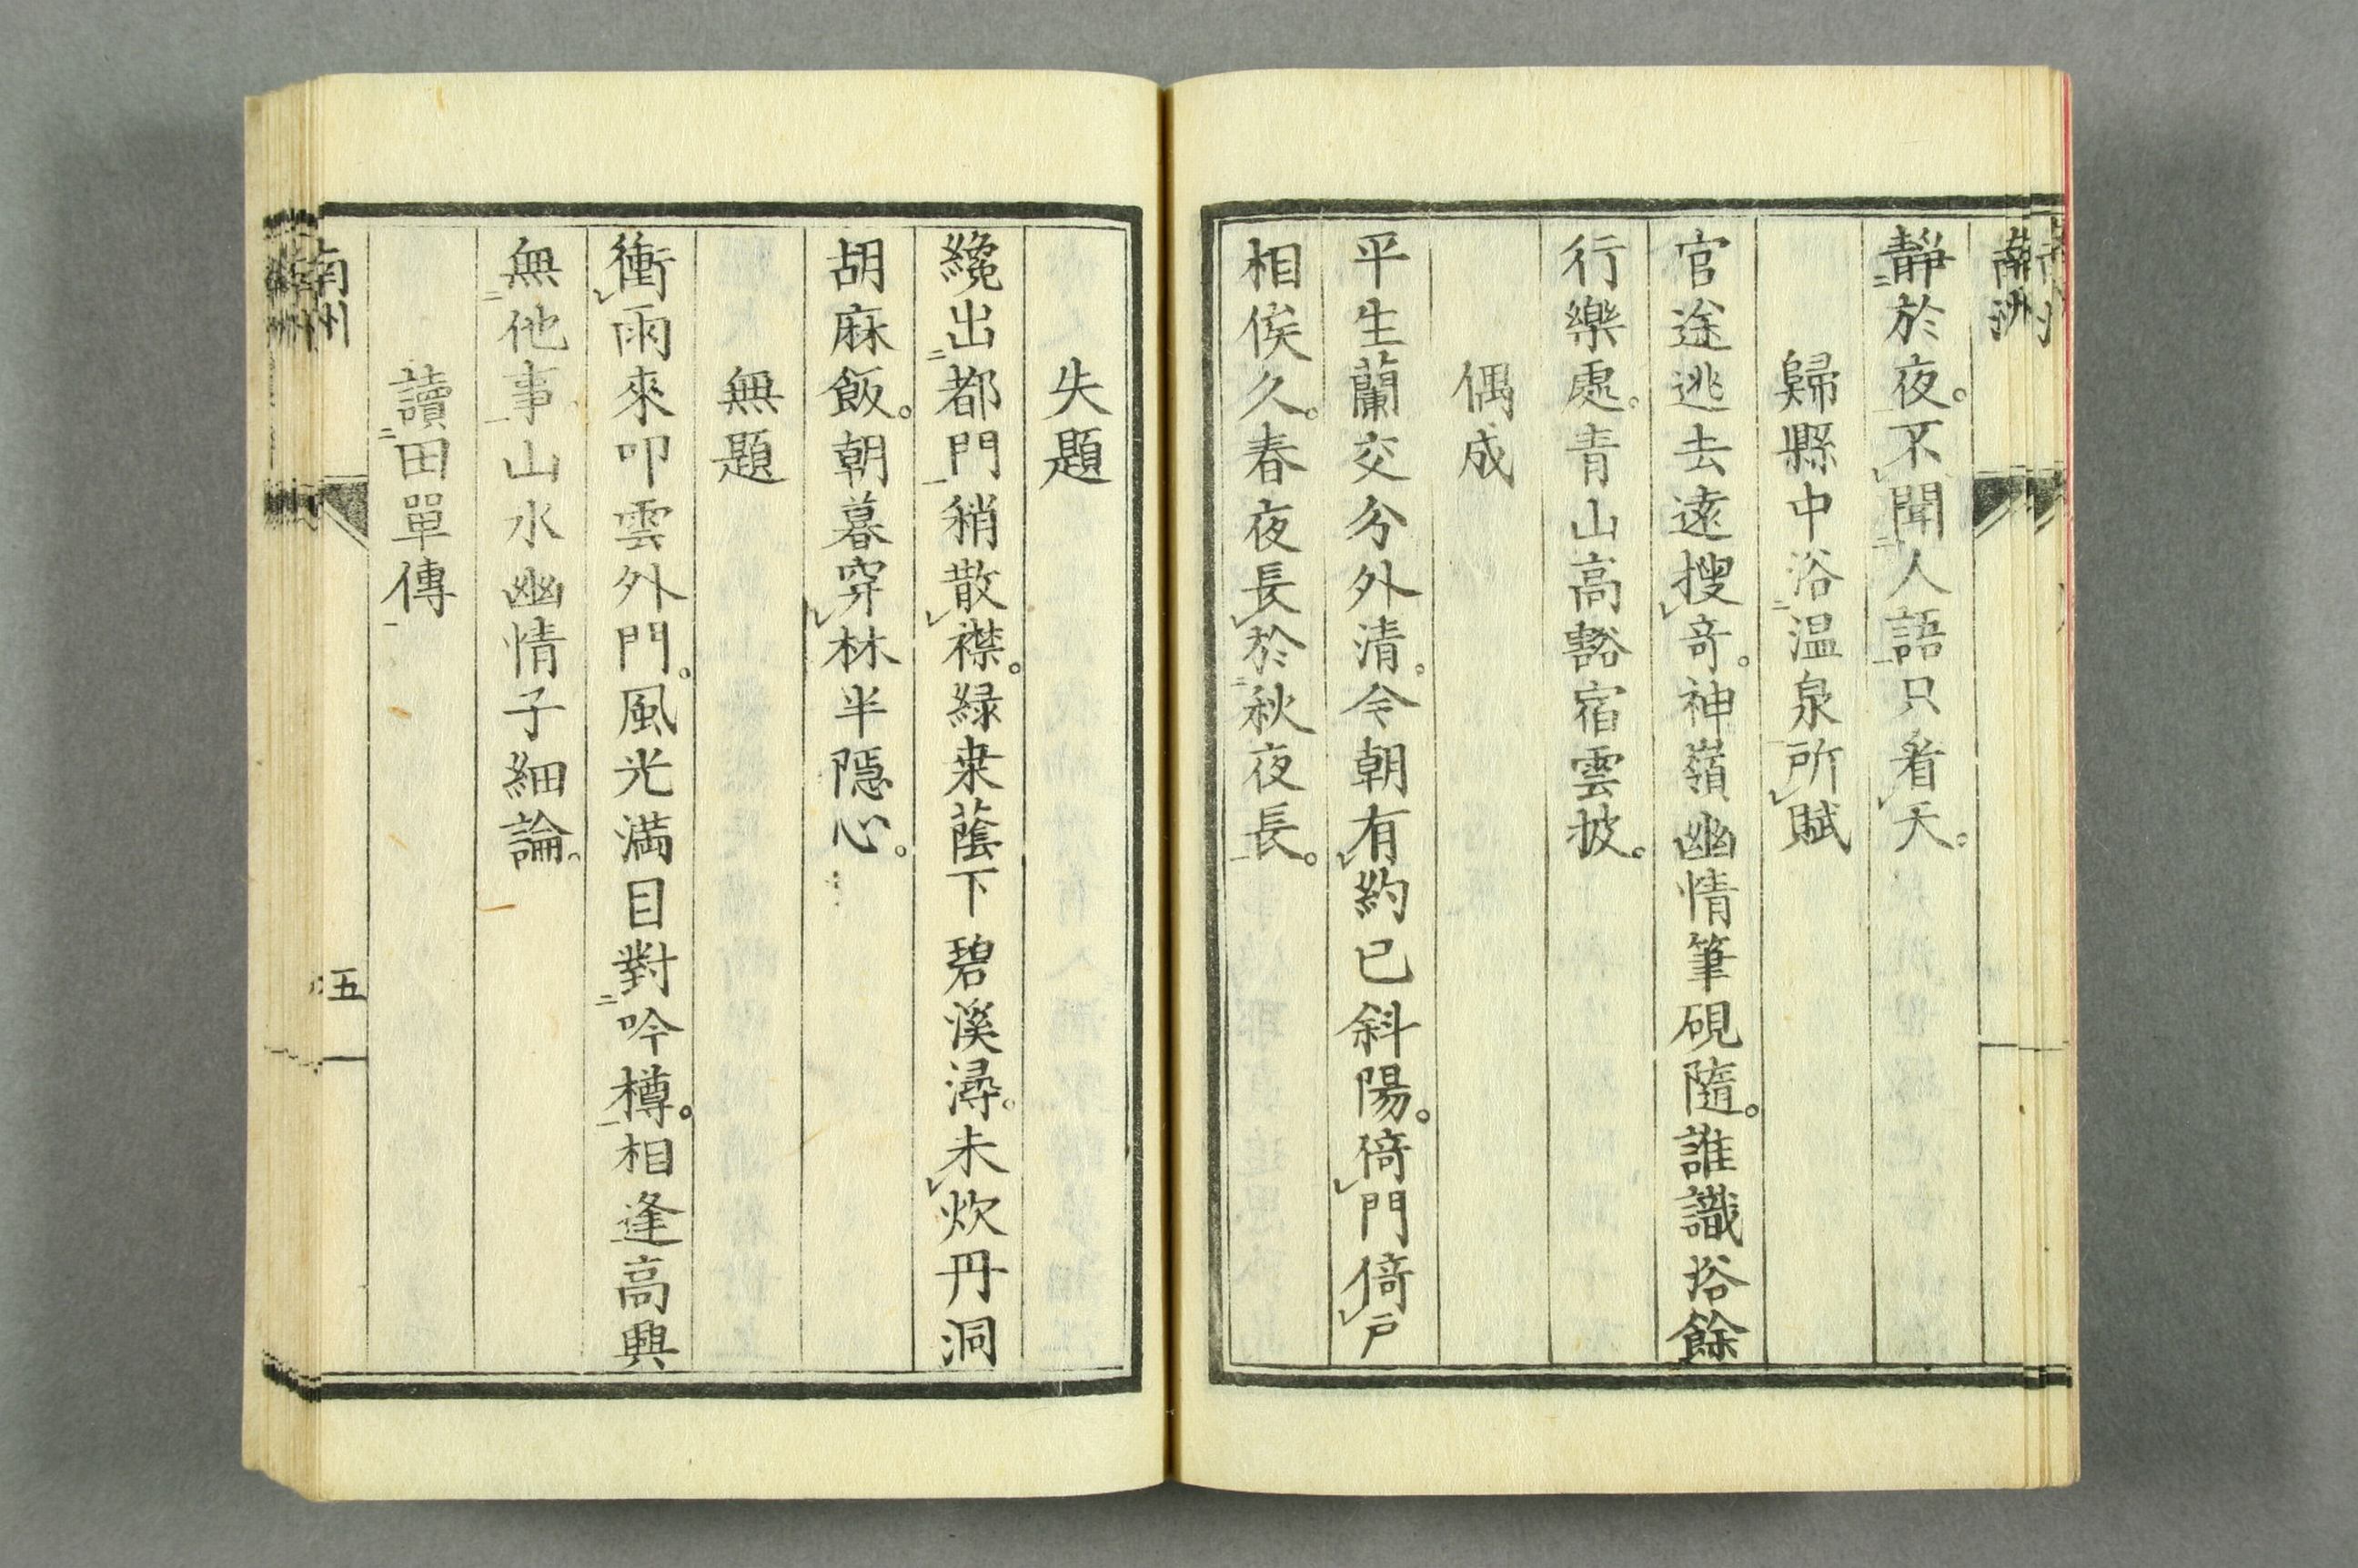 南洲
靜於夜。不聞人語只看天。
歸縣中浴温泉所賦
官途逃去遠搜奇。神嶺幽情筆硯隨。誰識浴餘
行樂處。青山高豁宿雲披。
偶成
平生蘭交分外清。今朝有約已斜陽。倚門倚戸
相俟久。春夜長於秋夜長。
失題
纔出都門稍散襟。緑桒蔭下碧溪潯。未炊丹洞
胡麻飯。朝暮穿林半隠心。
無題
衝雨來叩雲外門。風光満目對吟樽。相逢高興
無他事山水幽情子細論。
讀田單傳
南州
五